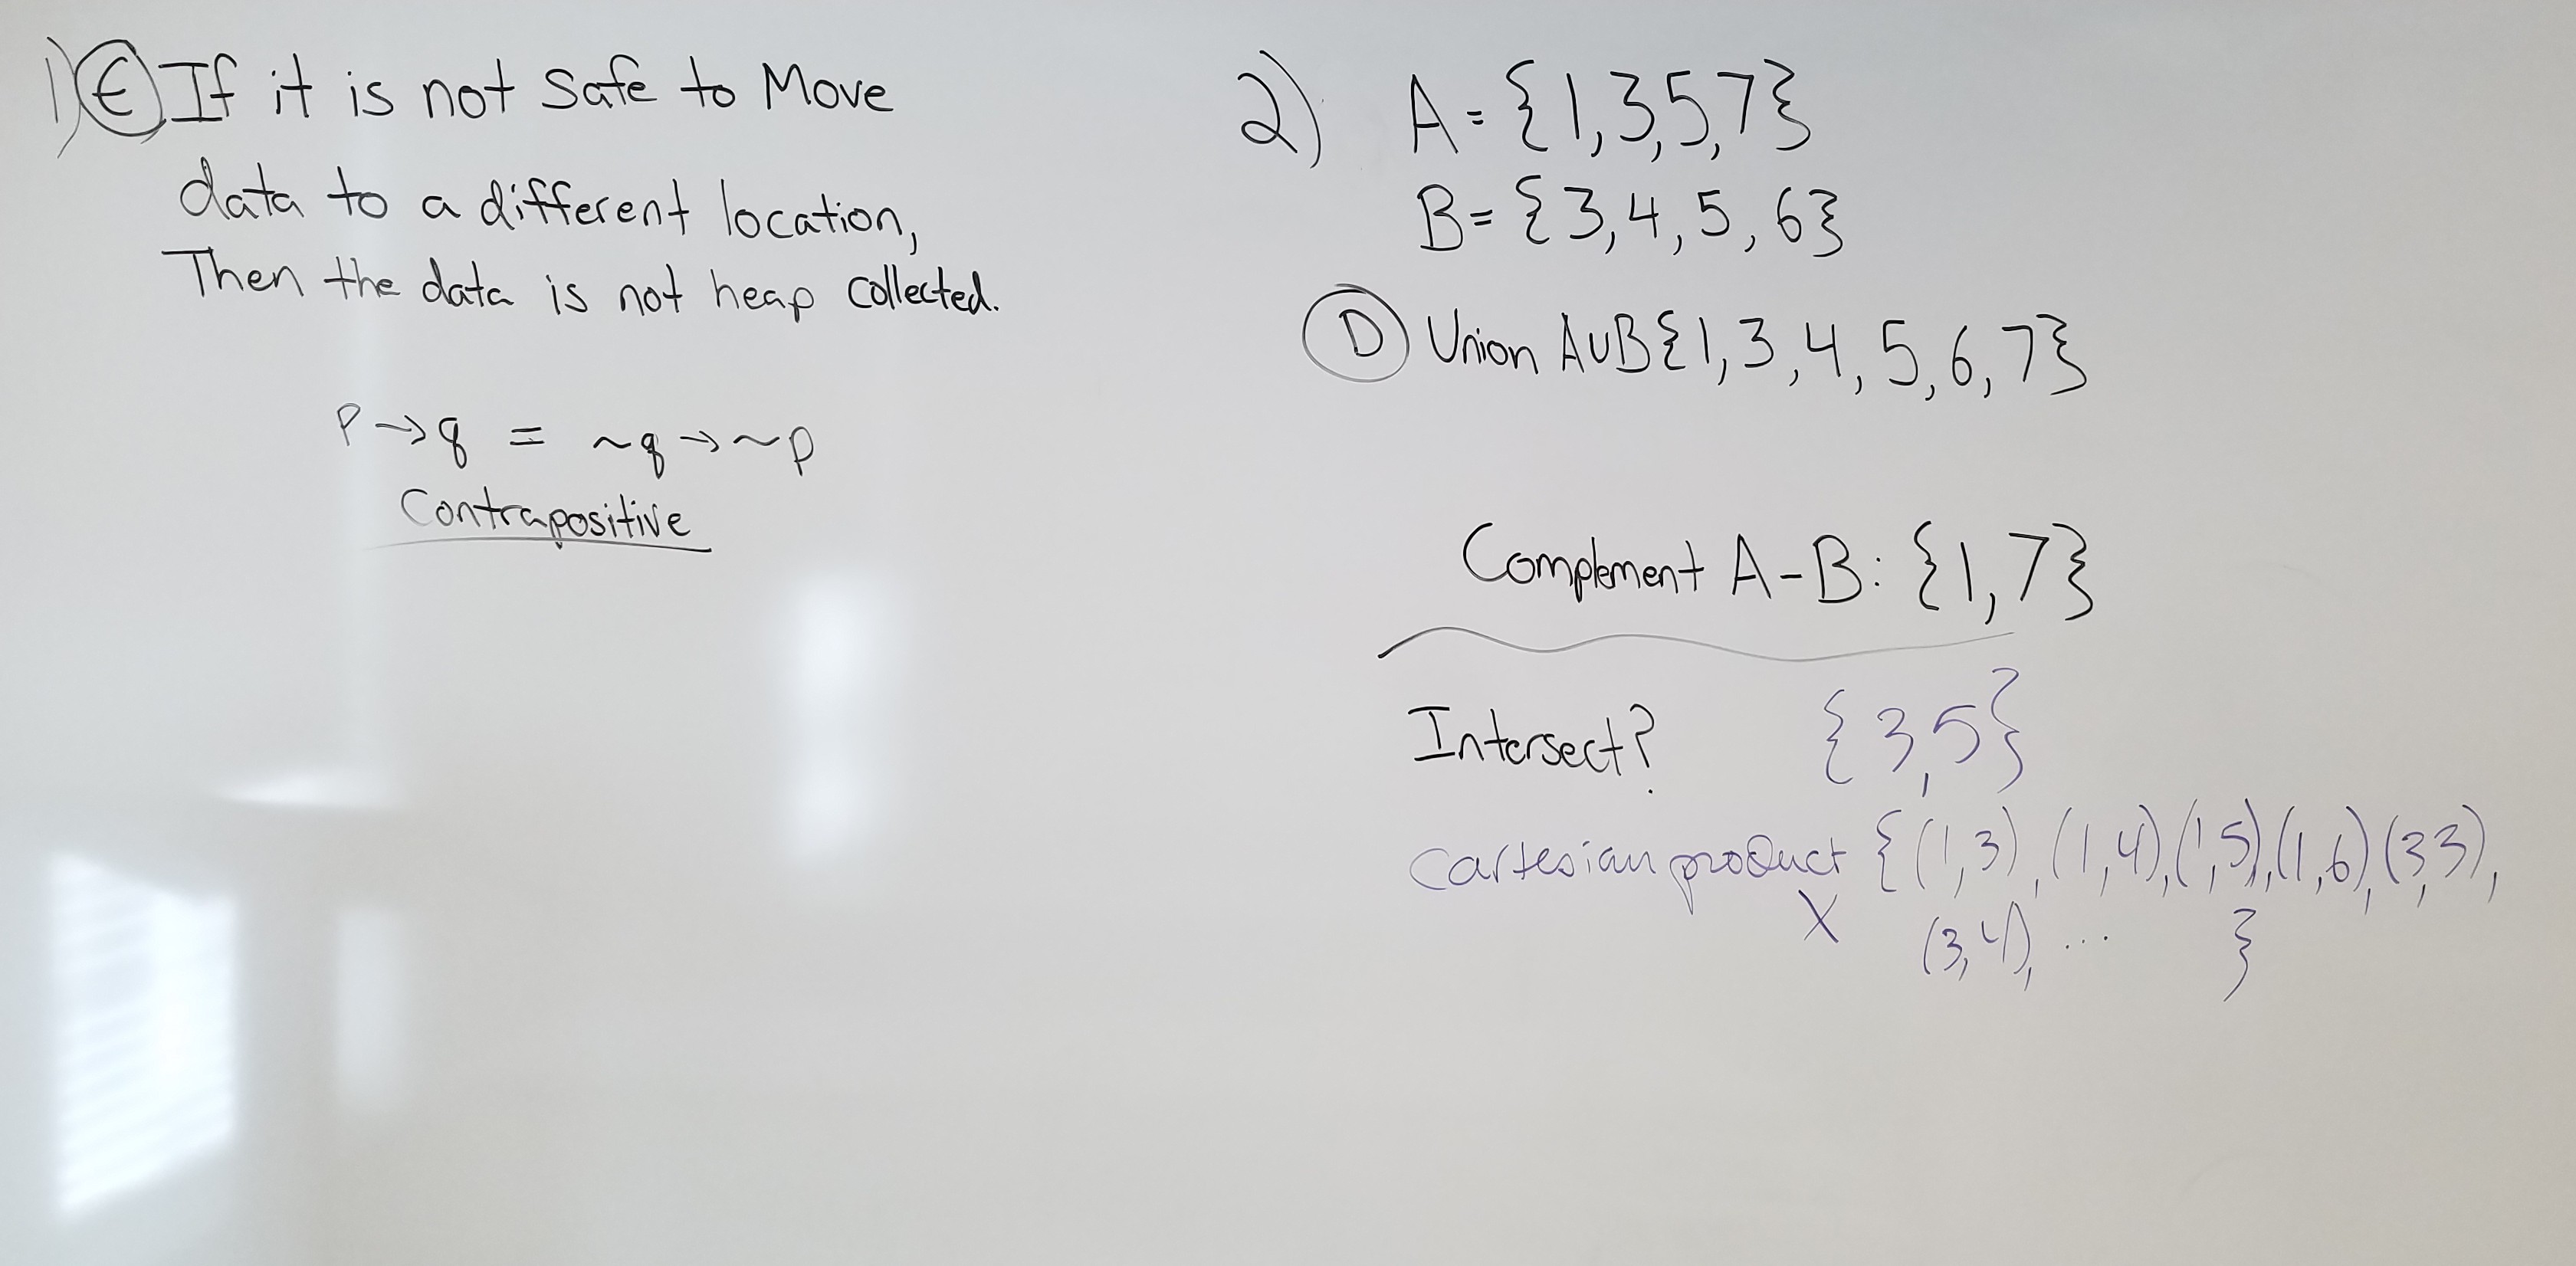 1) E If it is not Safe to Move
data to a different location,
Then the data is not heap collected.
p → q = ~q → ~p
Contrapositive
2) A = {1,3,5,7}
B = {3,4,5,6}
D Union A∪B {1,3,4,5,6,7}
Complement A-B: {1,7}
Intersect? {3,5}
Cartesian product {(1,3),(1,4),(1,5),(1,6),(3,3),
X (3,4), ... }